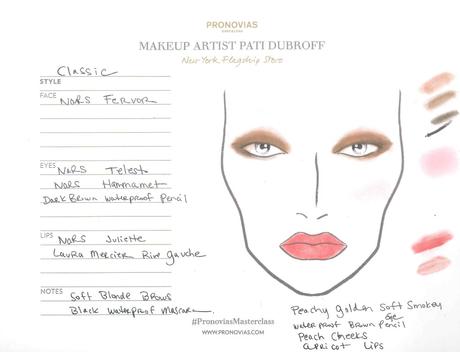 PRONOVIAS
BARCELONA
MAKEUP ARTIST PATI DUBROFF
New York Flagship Store
Classic
STYLE
FACE NARS Fervor
EYES NARS Telesto
NARS Hammamet
Dark Brown Waterproof Pencil
LIPS NARS Juliette
Laura Mercier Rive Gauche
NOTES Soft Blonde Brows
Black waterproof Mascara
#PronoviasMasterclass
WWW.PRONOVIAS.COM
Peachy golden Soft Smokey
eye
waterproof Brown Pencil
Peach Cheeks
apricot Lips